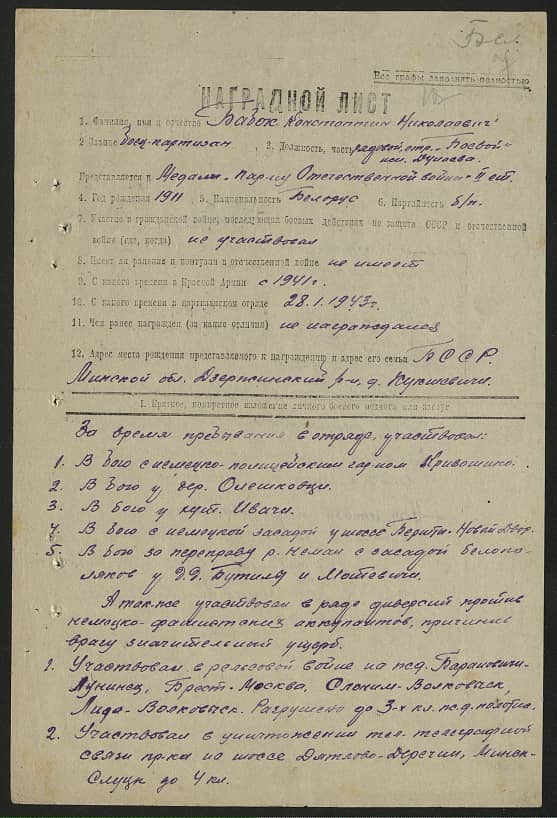 Все графы заполнять полностью
НАГРАДНОЙ ЛИСТ
1. Фамилия, имя и отчество Бабок Константин Николаевич
2 Звание боец-партизан, 3. Должность, часть рядовой, отр. „Боевой"
им. Дунаева.
Представляется к Медали „Пар-ну Отечественной войны" II ст.
4. Год рождения 1911 5. Национальность Белорус 6. Партийность б/п.
7. Участие в гражданской войне, последующих боевых действиях по защите СССР и отечественной
войне (где, когда) не участвовал
8. Имеет ли ранения и контузии в отечественной войне не имеет
9. С какого времени в Красной Армии с 1941г.
10. С какого времени в партизанском отряде 28.1.1943г.
11. Чем ранее награжден (за какие отличия) не награждался
12. Адрес места рождения представляемого к награждению и адрес его семьи БССР.
Минской обл. Дзержинский р-н, д. Кукшевичи.
I. Краткое, конкретное изложение личного боевого подвига или заслуг
За время пребывания в отряде, участвовал:
1. В бою с немецко-полицейским гар-ном Кривошино.
2. В бою у дер. Олешковци.
3. В бою у хут. Ивачи.
4. В бою с немецкой засадой у шоссе Новый Двор.
5. В бою за переправу р. Неман с засадой белопо-
ляков у д.д. и
А так-же участвовал в ряде диверсий против
немецко-фашистских аккупантов, причинив
врагу значительный ущерб.
1. Участвовал в рельсовой войне на ж.д. Барановичи-
Лунинец, Брест-Москва, Слоним-Волковыск,
Лида-Волковыск. Разрушено до 3-х кл. ж.д. полотна.
2. Участвовал в уничтожении тел. телеграфной
связи пр-ка на шоссе Дятлово-Деречин, Минск-
Слуцк до 4 кл.